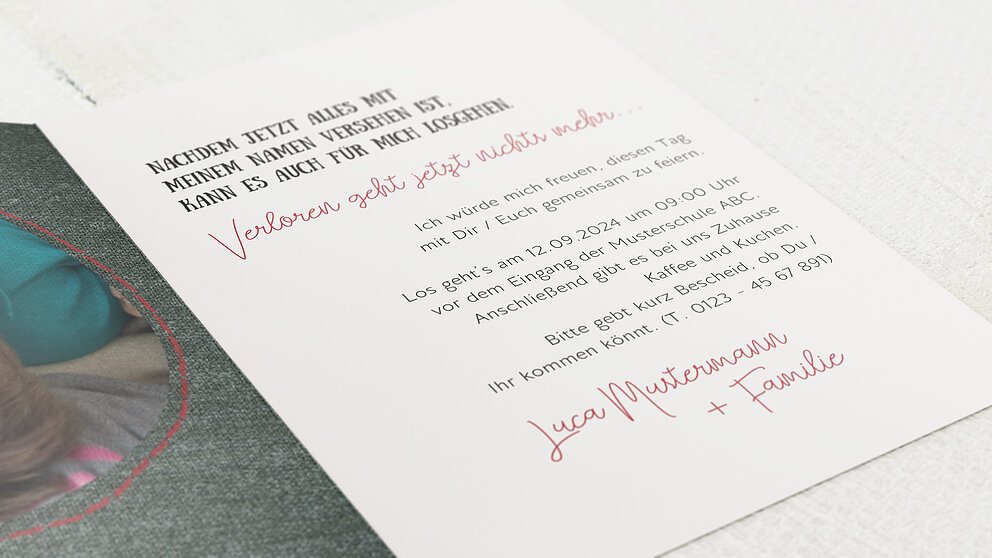 NACHDEM JETZT ALLES MIT
MEINEM NAMEN VERSEHEN IST,
KANN ES AUCH FÜR MICH LOSGEHEN.
Verloren geht jetzt nichts mehr...
Ich würde mich freuen, diesen Tag
mit Dir / Euch gemeinsam zu feiern.
Los geht´s am 12.09.2024 um 09:00 Uhr
vor dem Eingang der Musterschule ABC.
Anschließend gibt es bei uns Zuhause
Kaffee und Kuchen.
Bitte gebt kurz Bescheid, ob Du /
Ihr kommen könnt. (T. 0123 - 45 67 891)
Luca Mustermann
+ Familie